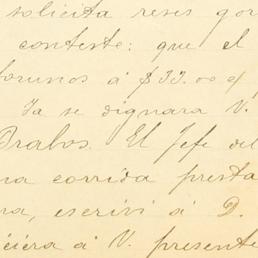 solicita reses gor
conteste: que el
torunos á $33.00 c/
Ya se dignara V.
Brabos. El Jefe del
na corrida presta
ra, escriví á D.
iciera á V. presente